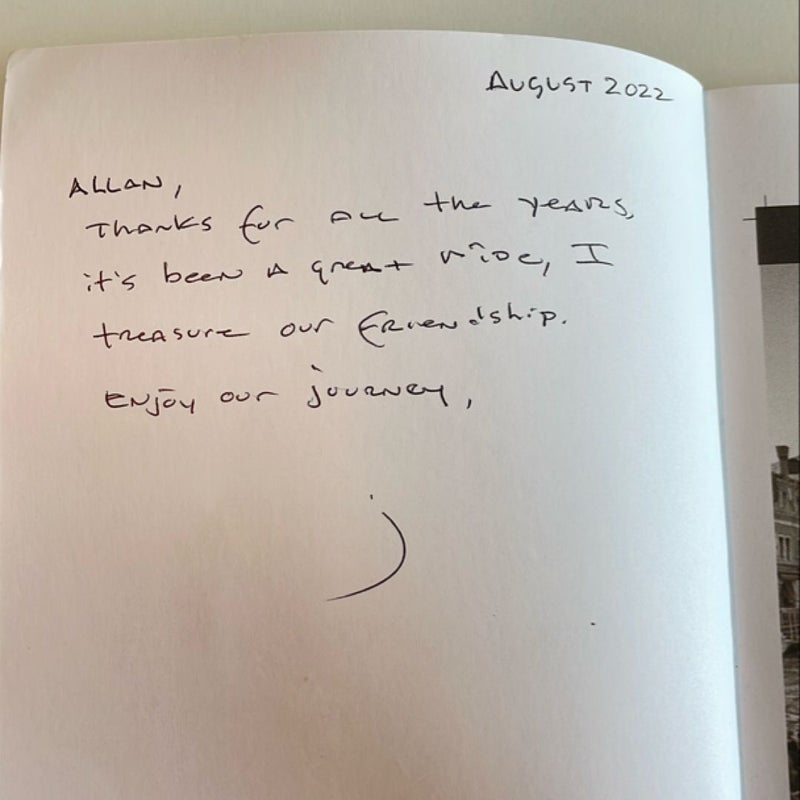 AUGUST 2022
ALLAN,
THANKS for ALL the YEARS,
it's been A great ride, I
treasure our friendship.
ENJOY our journey,
j